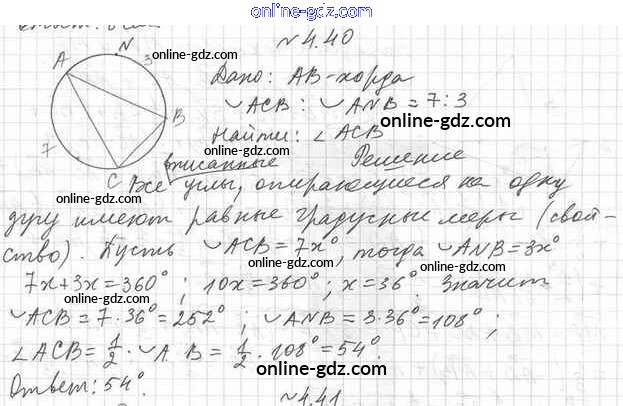 online-gdz.com
N 4.40
A N 3 online-gdz.com
Дано: AB - хорда
◡ACB : ◡ANB = 7 : 3
B online-gdz.com
Найти: ∠ACB
7 online-gdz.com
C вписанные Решение
Все углы, опирающиеся на одну
online-gdz.com
дугу имеют равные градусные меры (свой-
ство). Пусть ◡ACB = 7x°, тогда ◡ANB = 3x°
online-gdz.com online-gdz.com
7x + 3x = 360° ; 10x = 360° ; x = 36°. Значит
online-gdz.com
◡ACB = 7 · 36° = 252° ; ◡ANB = 3 · 36° = 108° ;
∠ACB = 1/2 · ◡A B = 1/2 · 108° = 54°.
online-gdz.com
Ответ: 54°.
N 4.41